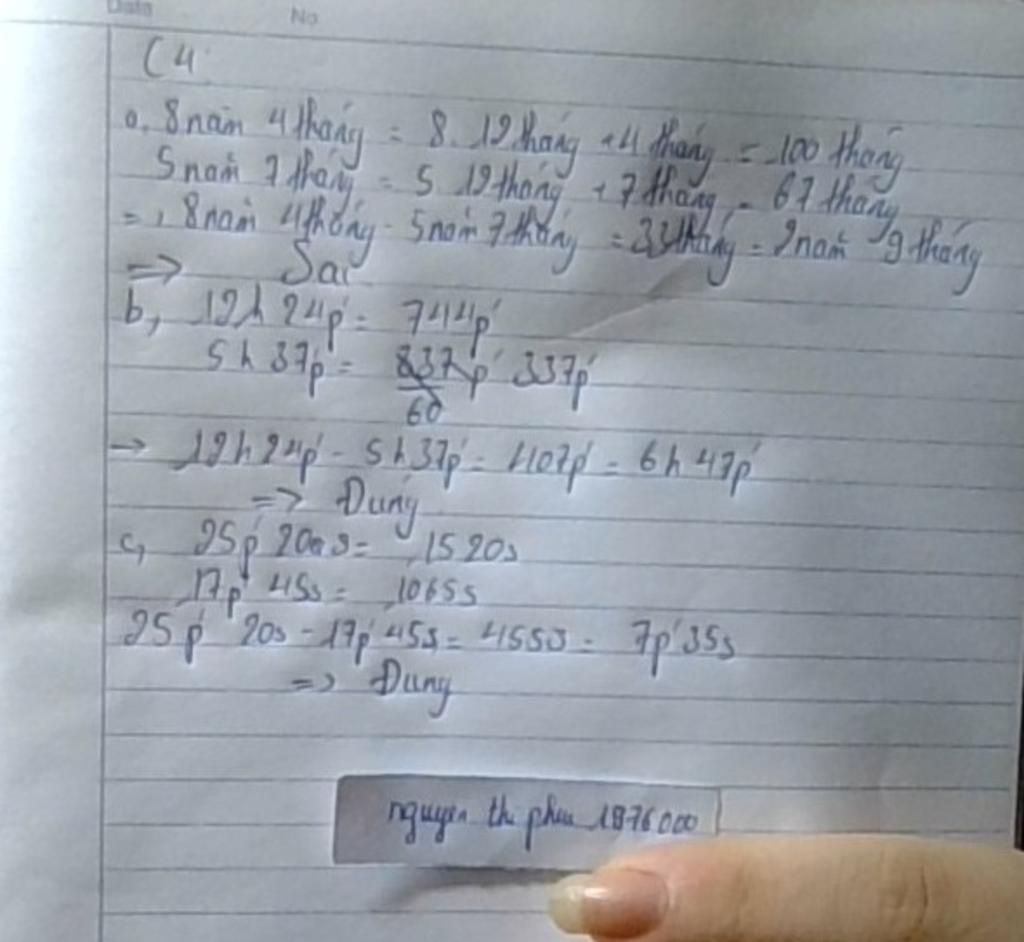 Date No
C4
a, 8 năm 4 tháng = 8.12 tháng + 4 tháng = 100 tháng
5 năm 7 tháng = 5 12 tháng + 7 tháng = 67 tháng
=, 8 năm 4 tháng - 5 năm 7 tháng = 33 tháng = 2 năm 9 tháng
=> Sai
b, 12h 24p' = 744p'
5h 37p' = 337p'
60
→ 12h 24p' - 5h 37p' = 407p' = 6h 47p'
=> Đúng
c, 25p' 20s = 1520s
17p' 45s = 1065s
25p' 20s - 17p' 45s = 455s = 7p' 35s
=> Đúng
nguyen thi 1876000